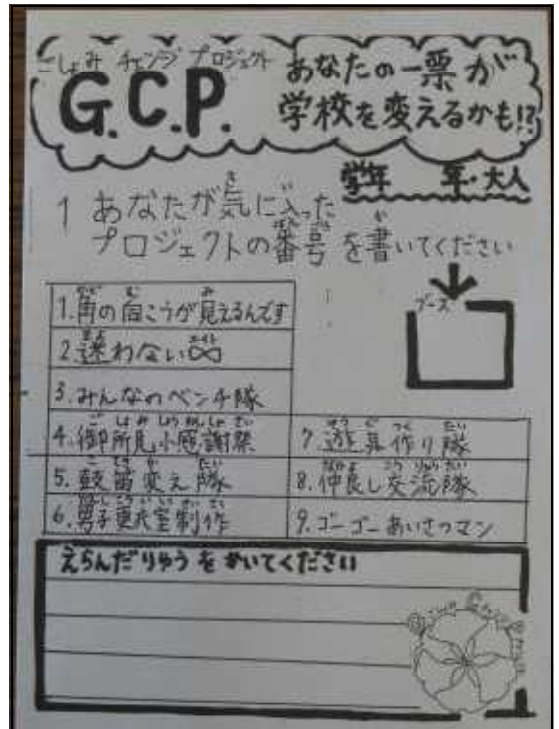 ごしょみ チェンジ プロジェクト
G.C.P.
あなたの一票が
学校を変えるかも!?
学年 年・大人
1 あなたが気に入った
プロジェクトの番号を書いてください
ブース
1.角の向こうが見えるんです
2.迷わない∞
3.みんなのベンチ隊
4.御所見小感謝祭
5.鼓笛変え隊
6.男子更衣室制作
7.遊具作り隊
8.仲良し交流隊
9.ゴーゴーあいさつマン
えらんだりゆうをかいてください